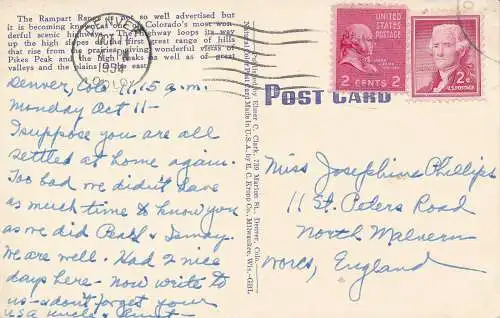 The Rampart Range is not so well advertised but
it is becoming known as one of Colorado's most won-
derful scenic highways. The Highway loops its way
up the high of the first great range of hills
that rise from the prairie giving wonderful vistas of
Pikes Peak and the high peaks as well as of great
valleys and the plains to the east.
DENVER
OCT 11
1954
COLO.
Denver, Colo 11,15 a.m.
Monday Oct 11-
I suppose you are all
settled at home again.
Too bad we didn't have
as much time to know you
as we did Peath &
We are well. Had 2 nice
days here - now write to
us - & don't forget your
USA Uncle & Aunt -
Published by Elmer C. Clark, 739 Marion St., Denver, Colo.
Natural Color Plates and Made in U. S. A. by E. C. Kropp Co., Milwaukee, Wis.-GBL
POST CARD
UNITED
STATES
POSTAGE
2 CENTS 2
2¢
U.S. POSTAGE
Miss Josephine Phillips
11 St. Peters Road
North Malvern
Worcs, England